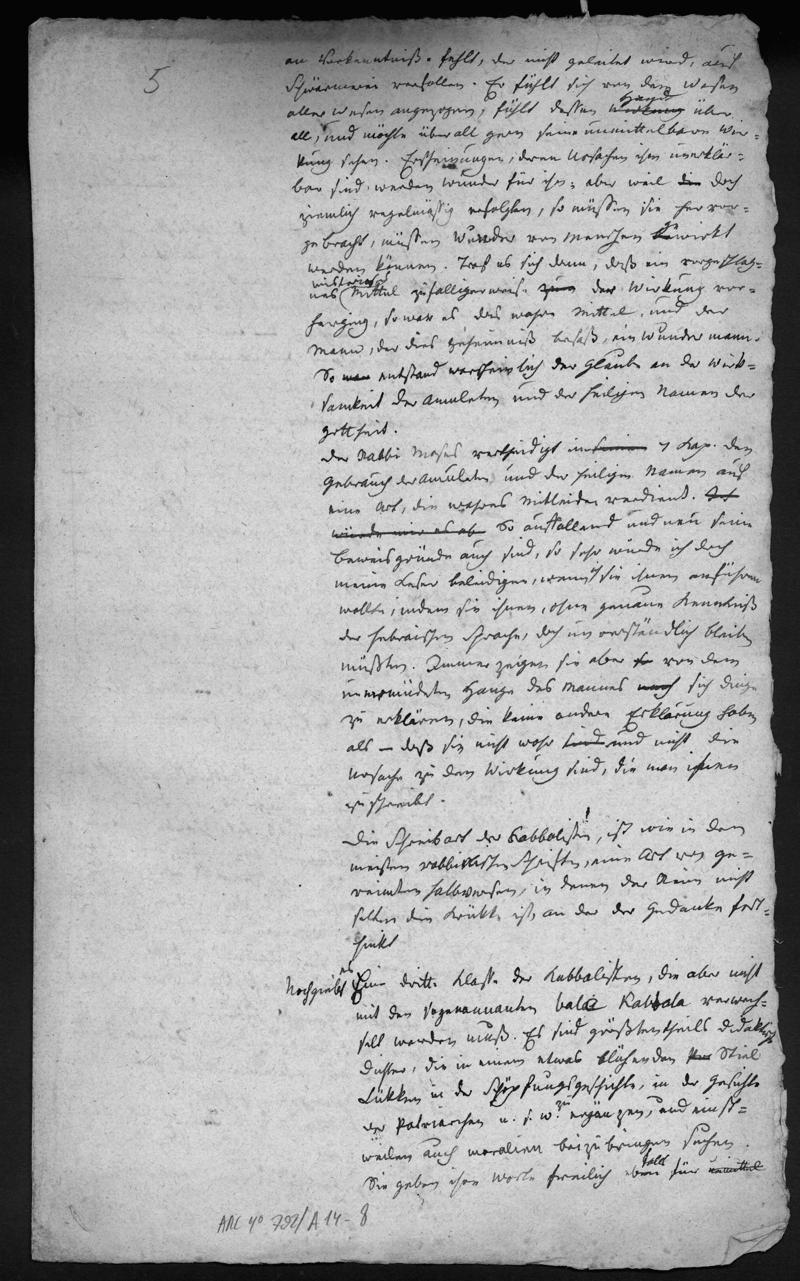 5
an Vorkenntniß fehlt, der nicht geleitet wird, auf
Schwärmerei verfallen. Er fühlt sich von dem Wesen
aller Wesen angezogen, fühlt dessen Wirkung über
all, und möchte überall gern seine unmittelbare Wir-
kung sehen. Erscheinungen, deren Ursachen ihm unerklär-
bar sind, werden Wunder für ihn; aber weil die doch
ziemlich regelmäßig erfolgten, so müssen sie hervor-
gebracht, müssen Wunder von Menschen gewirkt
werden können. Traf es sich denn, daß ein vorgeschlag-
nes Mittel zufälligerweise zum der Wirkung vor-
herging, so war es das wahre Mittel, und der
Mann, der dies Geheimniß besaß, ein Wundermann.
So war entstand warscheinlich der Glaube an der Wirk-
samkeit der Amuleten und der heiligen Namen der
Gottheit.
Der Rabbi Moses vertheidigt im 7 Kap. den
Gebrauch der Amuleten und der heiligen Namen auf
eine Art, die wahres Mitleiden verdient.
würde mir es ab So auffallend und neu seine
Beweisgründe auch sind, so sehr würde ich doch
meine Leser beleidigen, wenn ich sie ihnen anführen
wollte, indem sie ihnen, ohne genaue Kenntniß
der hebräischen Sprache, doch unverständlich bleiben
müßten. Immer zeigen sie aber von dem
unermüdeten Hange des Mannes auch sich Dinge
zu erklären, die keine andere Erklärung haben
als — daß sie nicht wahr sind und nicht die
Ursache zu den Wirkung sind, die man ihnen
zuschreibt.
Die Schreibart der Kabbalisten, ist wie in den
meisten rabbinischen Schriften, eine Art von ge-
reimten Halbversen, in denen der Reim nicht
selten die Krücke ist, an der der Gedanke fort-
hinkt
Noch giebt es Eine dritte Klasse der Kabbalisten, die aber nicht
mit den sogenannten Kabbala verwech-
selt werden muß. Es sind größtentheils didaktische
Dichter, die in einem etwas blühenden Stiel
Lükken in der Schöpfungsgeschichte, in der Geschichte
der Patriarchen u. s. w. zu ergänzen, und einst-
weilen auch Moralien beizubringen suchen.
Sie geben ihre Worte freilich für unmittel
ARC 4° 792/A 14-8